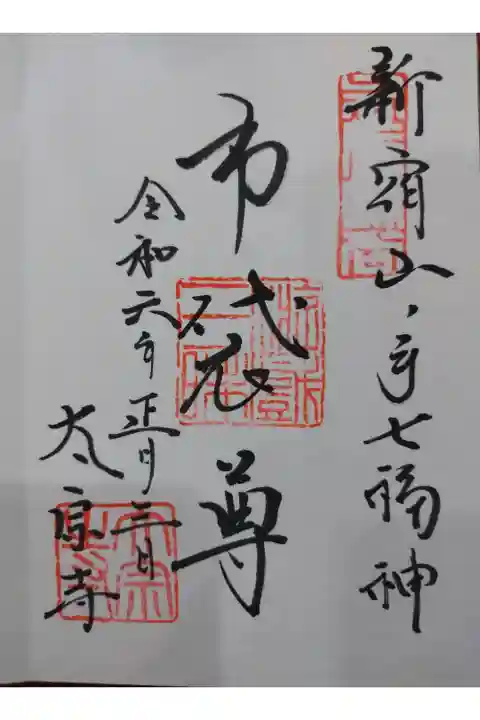 新宿山ノ手七福神
布袋尊
令和六年正月三日
太宗寺